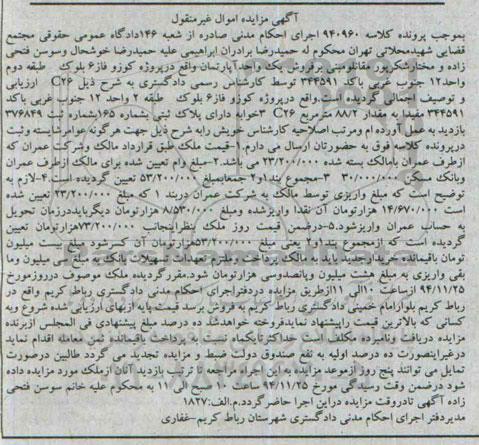 آگهی مزایده اموال غیرمنقول
بموجب پرونده کلاسه ۹۴۰۹۶۰ اجرای احکام مدنی صادره از شعبه ۱۴۶دادگاه عمومی حقوقی مجتمع
قضایی شهیدمحلاتی تهران محکوم له حمیدرضا برادران ابراهیمی علیه حمیدرضا خوشحال وسوسن فتحی
زاده و مختارشکرپور مقانلومبنی برفروش یک واحدآپارتمان واقع درپروژه کوزو فاز۶ بلوک طبقه دوم
واحد۱۲ جنوب غربی باکد ۳۴۴۵۹۱ توسط کارشناس رسمی دادگستری به شرح ذیل C۲۶ ارزیابی
و توصیف اجمالی گردیده است.واقع درپروژه کوزو فاز۶ بلوک طبقه ۲ واحد ۱۲ جنوب غربی باکد
۳۴۴۵۹۱ مفیدا به مقدار ۸۸/۲ مترمربع C۲۶ ۳خوابه دارای پلاک ثبتی بشماره ۱۶۵بشماره ثبت ۳۷۶۸۴۹
بازدید به عمل آورده ام ومرتب اصلاحیه کارشناسی خویش رابه شرح ذیل جهت هرگونه عوامرشایسته وثبت
درپرونده کلاسه فوق به حضورتان ارسال می دارم.۱-قیمت ملک طبق قرارداد مالک وشرکت عمران که
ازطرف عمران بامالک بسته شده ۲۳/۲۰۰/۰۰۰ می باشد.۲-مبلغ وام تعیین شده برای مالک ازطرف عمران
وبانک مسکن ۳۰/۰۰۰/۰۰۰ ۳-مجموع بند۱و۲ جمعابمبلغ ۵۳/۲۰۰/۰۰۰ تعیین گردیده است.۴-لازم به
توضیح است که مبلغ واریزی توسط مالک به شرکت عمران دربند ۱ که مبلغ ۲۳/۲۰۰/۰۰۰ تعیین شده
است ۱۴/۶۷۰/۰۰۰ هزارتومان آن نقدا واریزشده ومبلغ ۸/۵۳۰/۰۰۰ هزارتومان دیگربایددرزمان تحویل
به حساب عمران واریزشود.۵-درضمن قیمت روز ملک بنظراینجانب ۷۳/۲۰۰/۰۰۰هزارتومان تعیین
گردیده است که ازمجموع بند۱و۲ یعنی مبلغ ۵۳/۲۰۰/۰۰۰هزارتومان آن کسرشود مبلغ بیست میلیون
تومان باقیمانده خریدارجدید باید به مالک پرداخت وملزم تعهدات تسهیلات بانک به مبلغ سی میلیون ومت
بقی واریزی به مبلغ هشت میلیون وپانصدوسی هزارتومان شود.مقررگردیده ملک موصوف درروزمورخ
۹۴/۱۱/۲۵ ازساعت ۱۰الی ۱۱ازطریق مزایده دردفتراجرای احکام مدنی دادگستری رباط کریم واقع در
رباط کریم بلوارامام خمینی دادگستری رباط کریم به فروش برسد قیمت پایه ازبهای ارزیابی شده شروع وبه
کسانی که بالاترین قیمت راپیشنهاد نمایدفروخته خواهدشد ده درصد مبلغ پیشنهادی فی المجلس ازبرنده
مزایده دریافت ونامبرده مکلف است حداکثرتایکماه نسبت به پرداخت باقیمانده ثمن معامله اقدام نماید
درغیراینصورت ده درصد اولیه به نفع صندوق دولت ضبط و مزایده تجدید می گردد طالبین درصورت
تمایل می توانند پنج روز ازموعد مزایده به این اجراء مراجعه تا ترتیب بازدید آنان ازملک مورد مزایده داده
شود درضمن وقت رسیدگی مورخ ۹۴/۱۱/۲۵ ساعت ۱۰ صبح الی ۱۱ به محکوم علیه خانم سوسن فتحی
زاده آگهی تادروقت مزایده دراین اجرا حاضرگردد.م.الف:۱۸۲۷
مدیردفتر اجرای احکام مدنی دادگستری شهرستان رباط کریم-غفاری